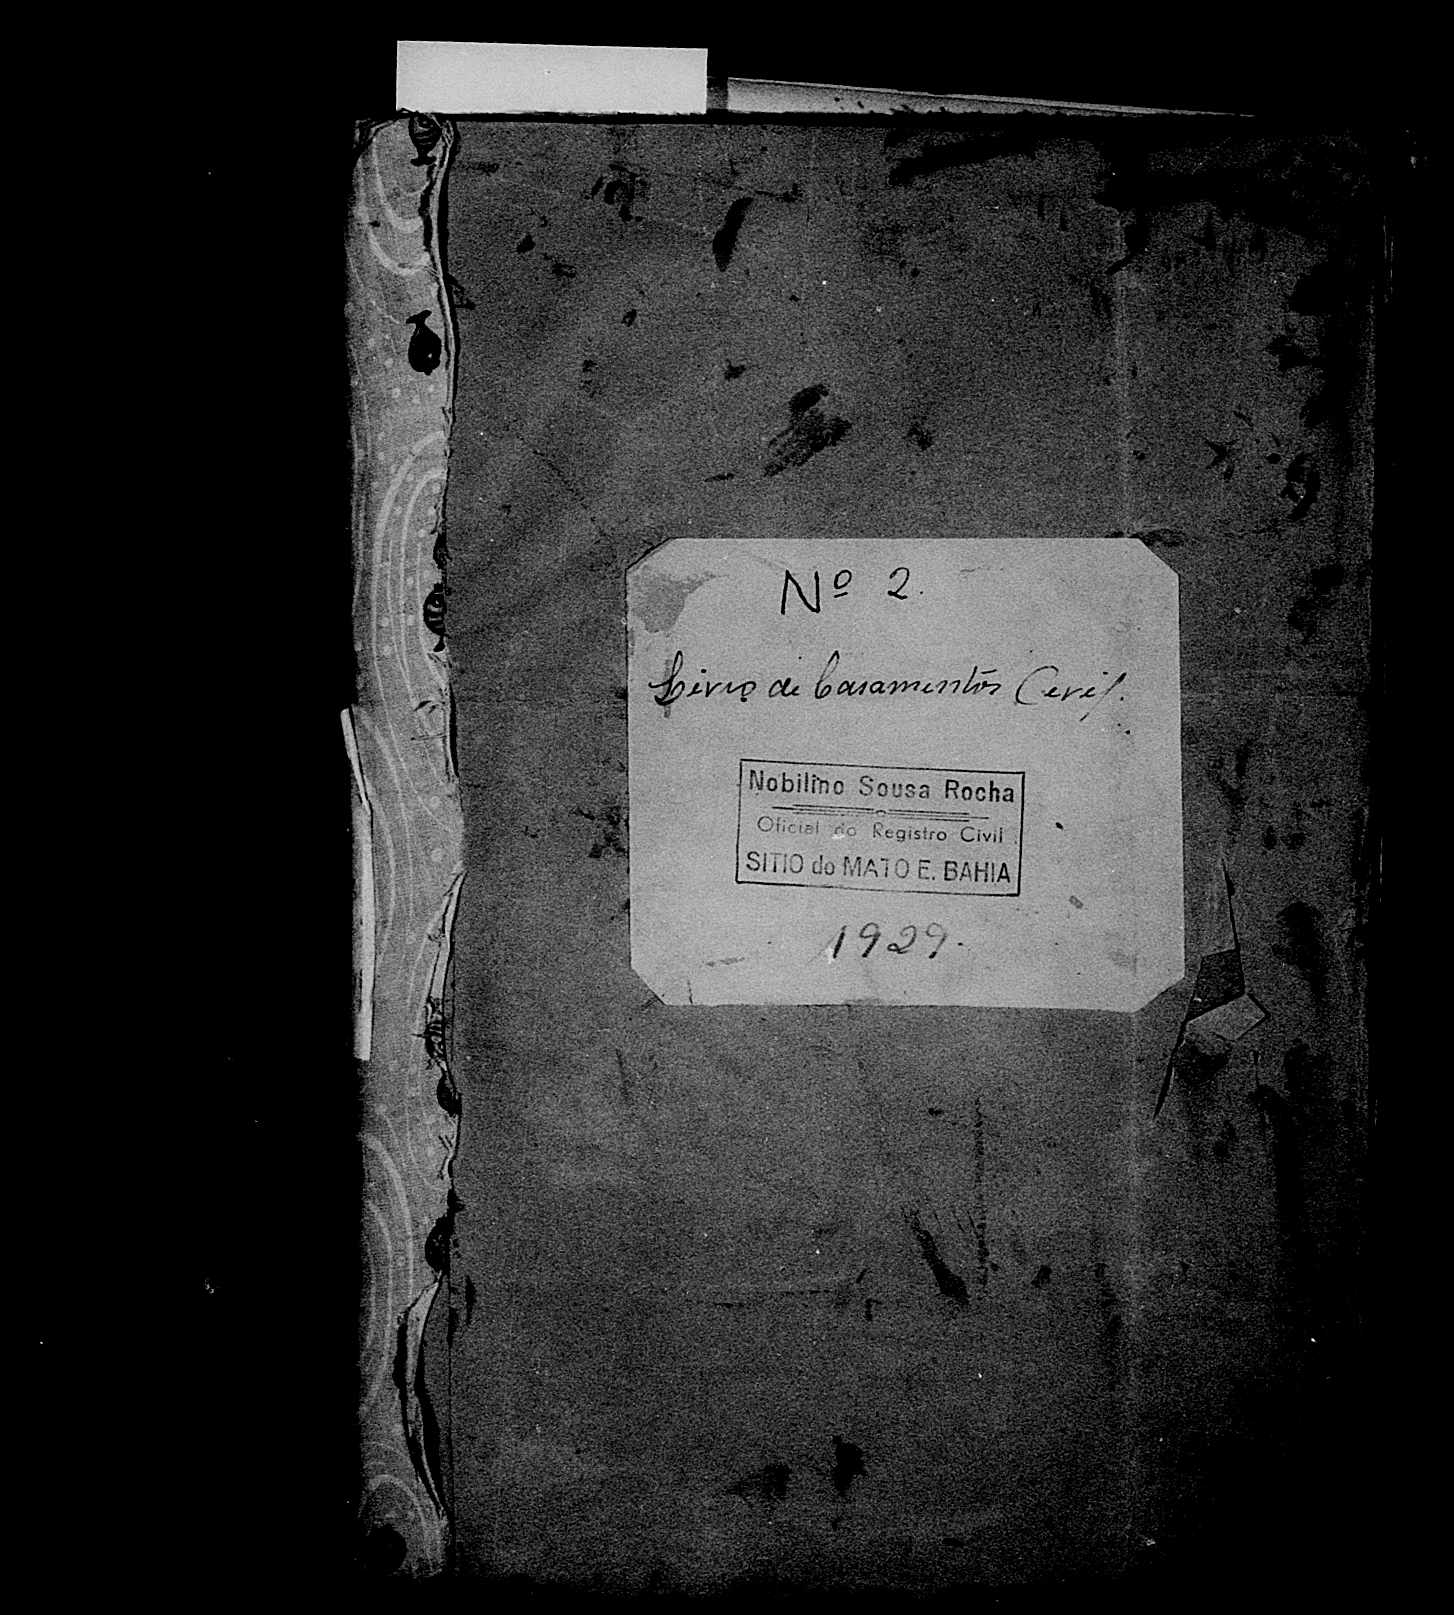 Nº 2.
Livro de Casamentos Civis.
Nobilino Sousa Rocha
Oficial do Registro Civil
SITIO do MATO E. BAHIA
1929.